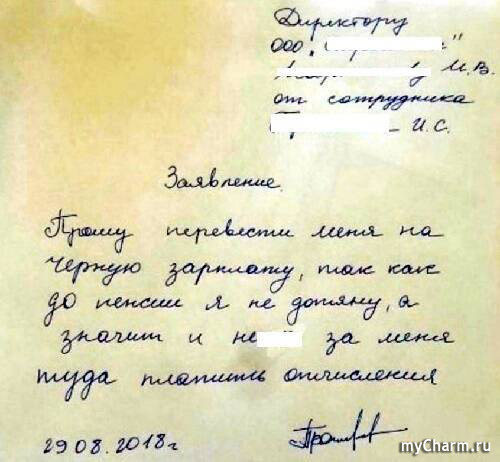 Директору
ООО „ "
И.В.
от сотрудника
И.С.
Заявление.
Прошу перевести меня на
черную зарплату, так как
до пенсии я не дотяну, а
значит и не за меня
туда платить отчисления
29.08.2018г
myCharm.ru